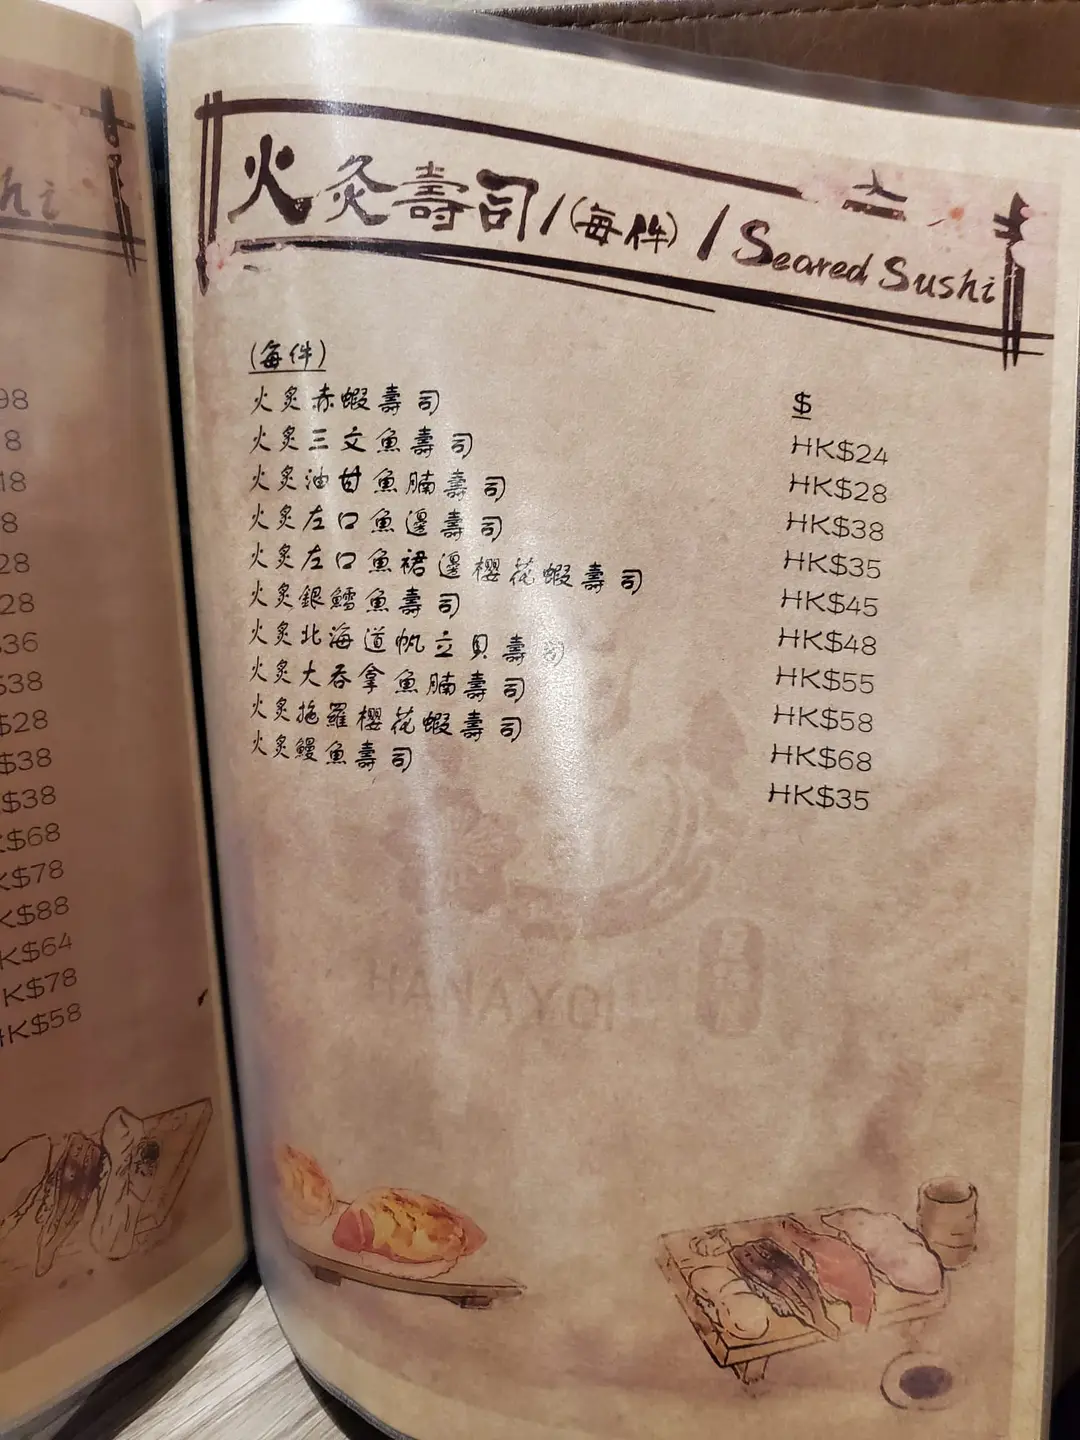 hi
98
8
18
8
28
28
36
$38
$28
$38
$38
K$68
K$78
K$88
K$64
K$78
HK$58
火炙壽司/(每件)/Seared Sushi
(每件)
$
火炙赤蝦壽司 HK$24
火炙三文魚壽司 HK$28
火炙油甘魚腩壽司 HK$38
火炙左口魚邊壽司 HK$35
火炙左口魚裙邊櫻花蝦壽司 HK$45
火炙銀鱈魚壽司 HK$48
火炙北海道帆立貝壽司 HK$55
火炙大吞拿魚腩壽司 HK$58
火炙拖羅櫻花蝦壽司 HK$68
火炙鰻魚壽司 HK$35
HANAYOI